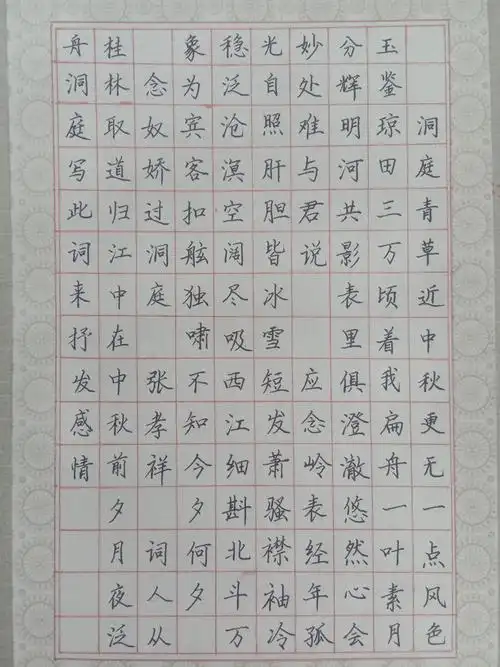 洞庭青草近中秋更无一点风色
玉鉴琼田三万顷着我扁舟一叶素月
分辉明河共影表里俱澄澈悠然心会
妙处难与君说 应念岭表经年孤
光自照肝胆皆冰雪短发萧骚襟袖冷
稳泛沧溟空阔尽吸西江细斟北斗万
象为宾客扣舷独啸不知今夕何夕
念奴娇过洞庭 张孝祥 词人从
桂林取道归江中在中秋前夕月夜泛
舟洞庭写此词来抒发感情